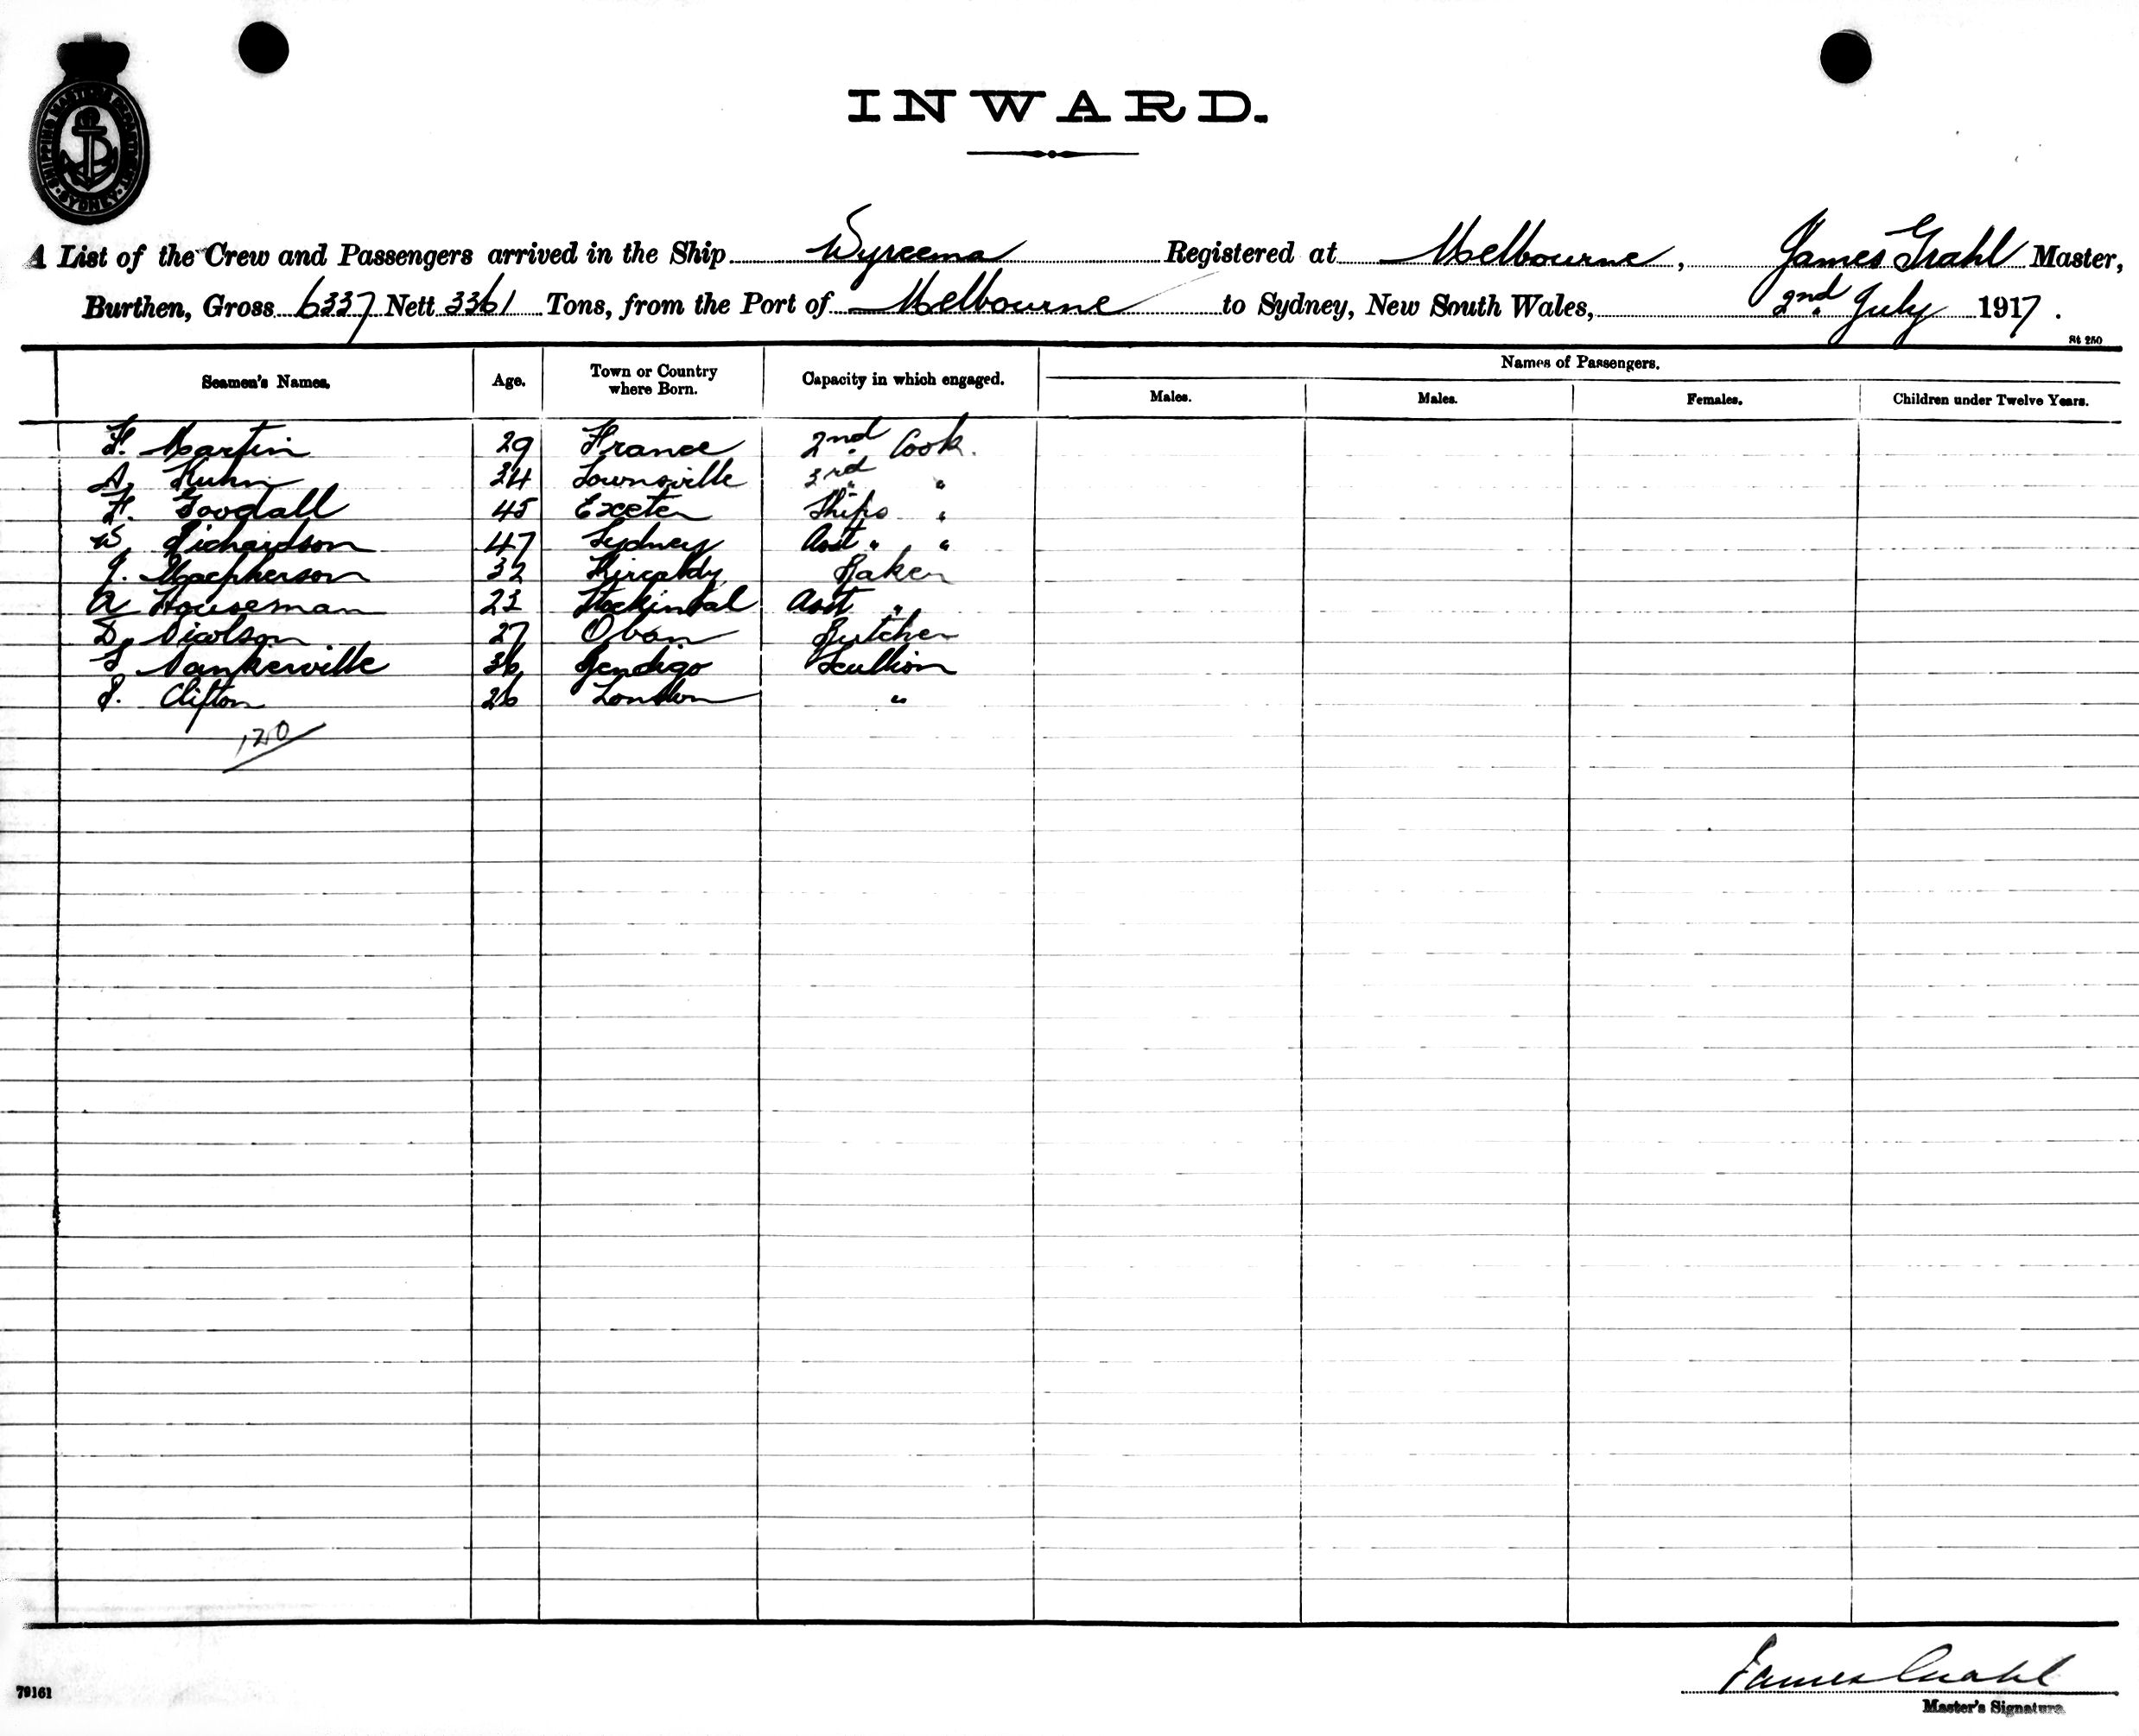 SHIPPING MASTERS DEPARTMENT SYDNEY
INWARD.
A List of the Crew and Passengers arrived in the Ship Wyreema Registered at Melbourne, James Grahl Master,
Burthen, Gross 6337 Nett 3361 Tons, from the Port of Melbourne to Sydney, New South Wales, 2nd July 1917.
St 250
Seamen's Names. Age. Town or Country where Born. Capacity in which engaged. Names of Passengers.
Males. Males. Females. Children under Twelve Years.
F. Martin 29 France 2nd Cook.
A. Kuhn 34 Townsville 3rd "
F. Goodall 45 Exeter Ships "
W. Richardson 47 Sydney Asst " "
J. Macpherson 32 Kircaldy Baker
A Houseman 23 Asst "
D. Nicolson 27 Oban Butcher
S Tankerville 36 Bendigo Scullion
P. Clifton 26 London "
120
James Grahl
79161
Master's Signature